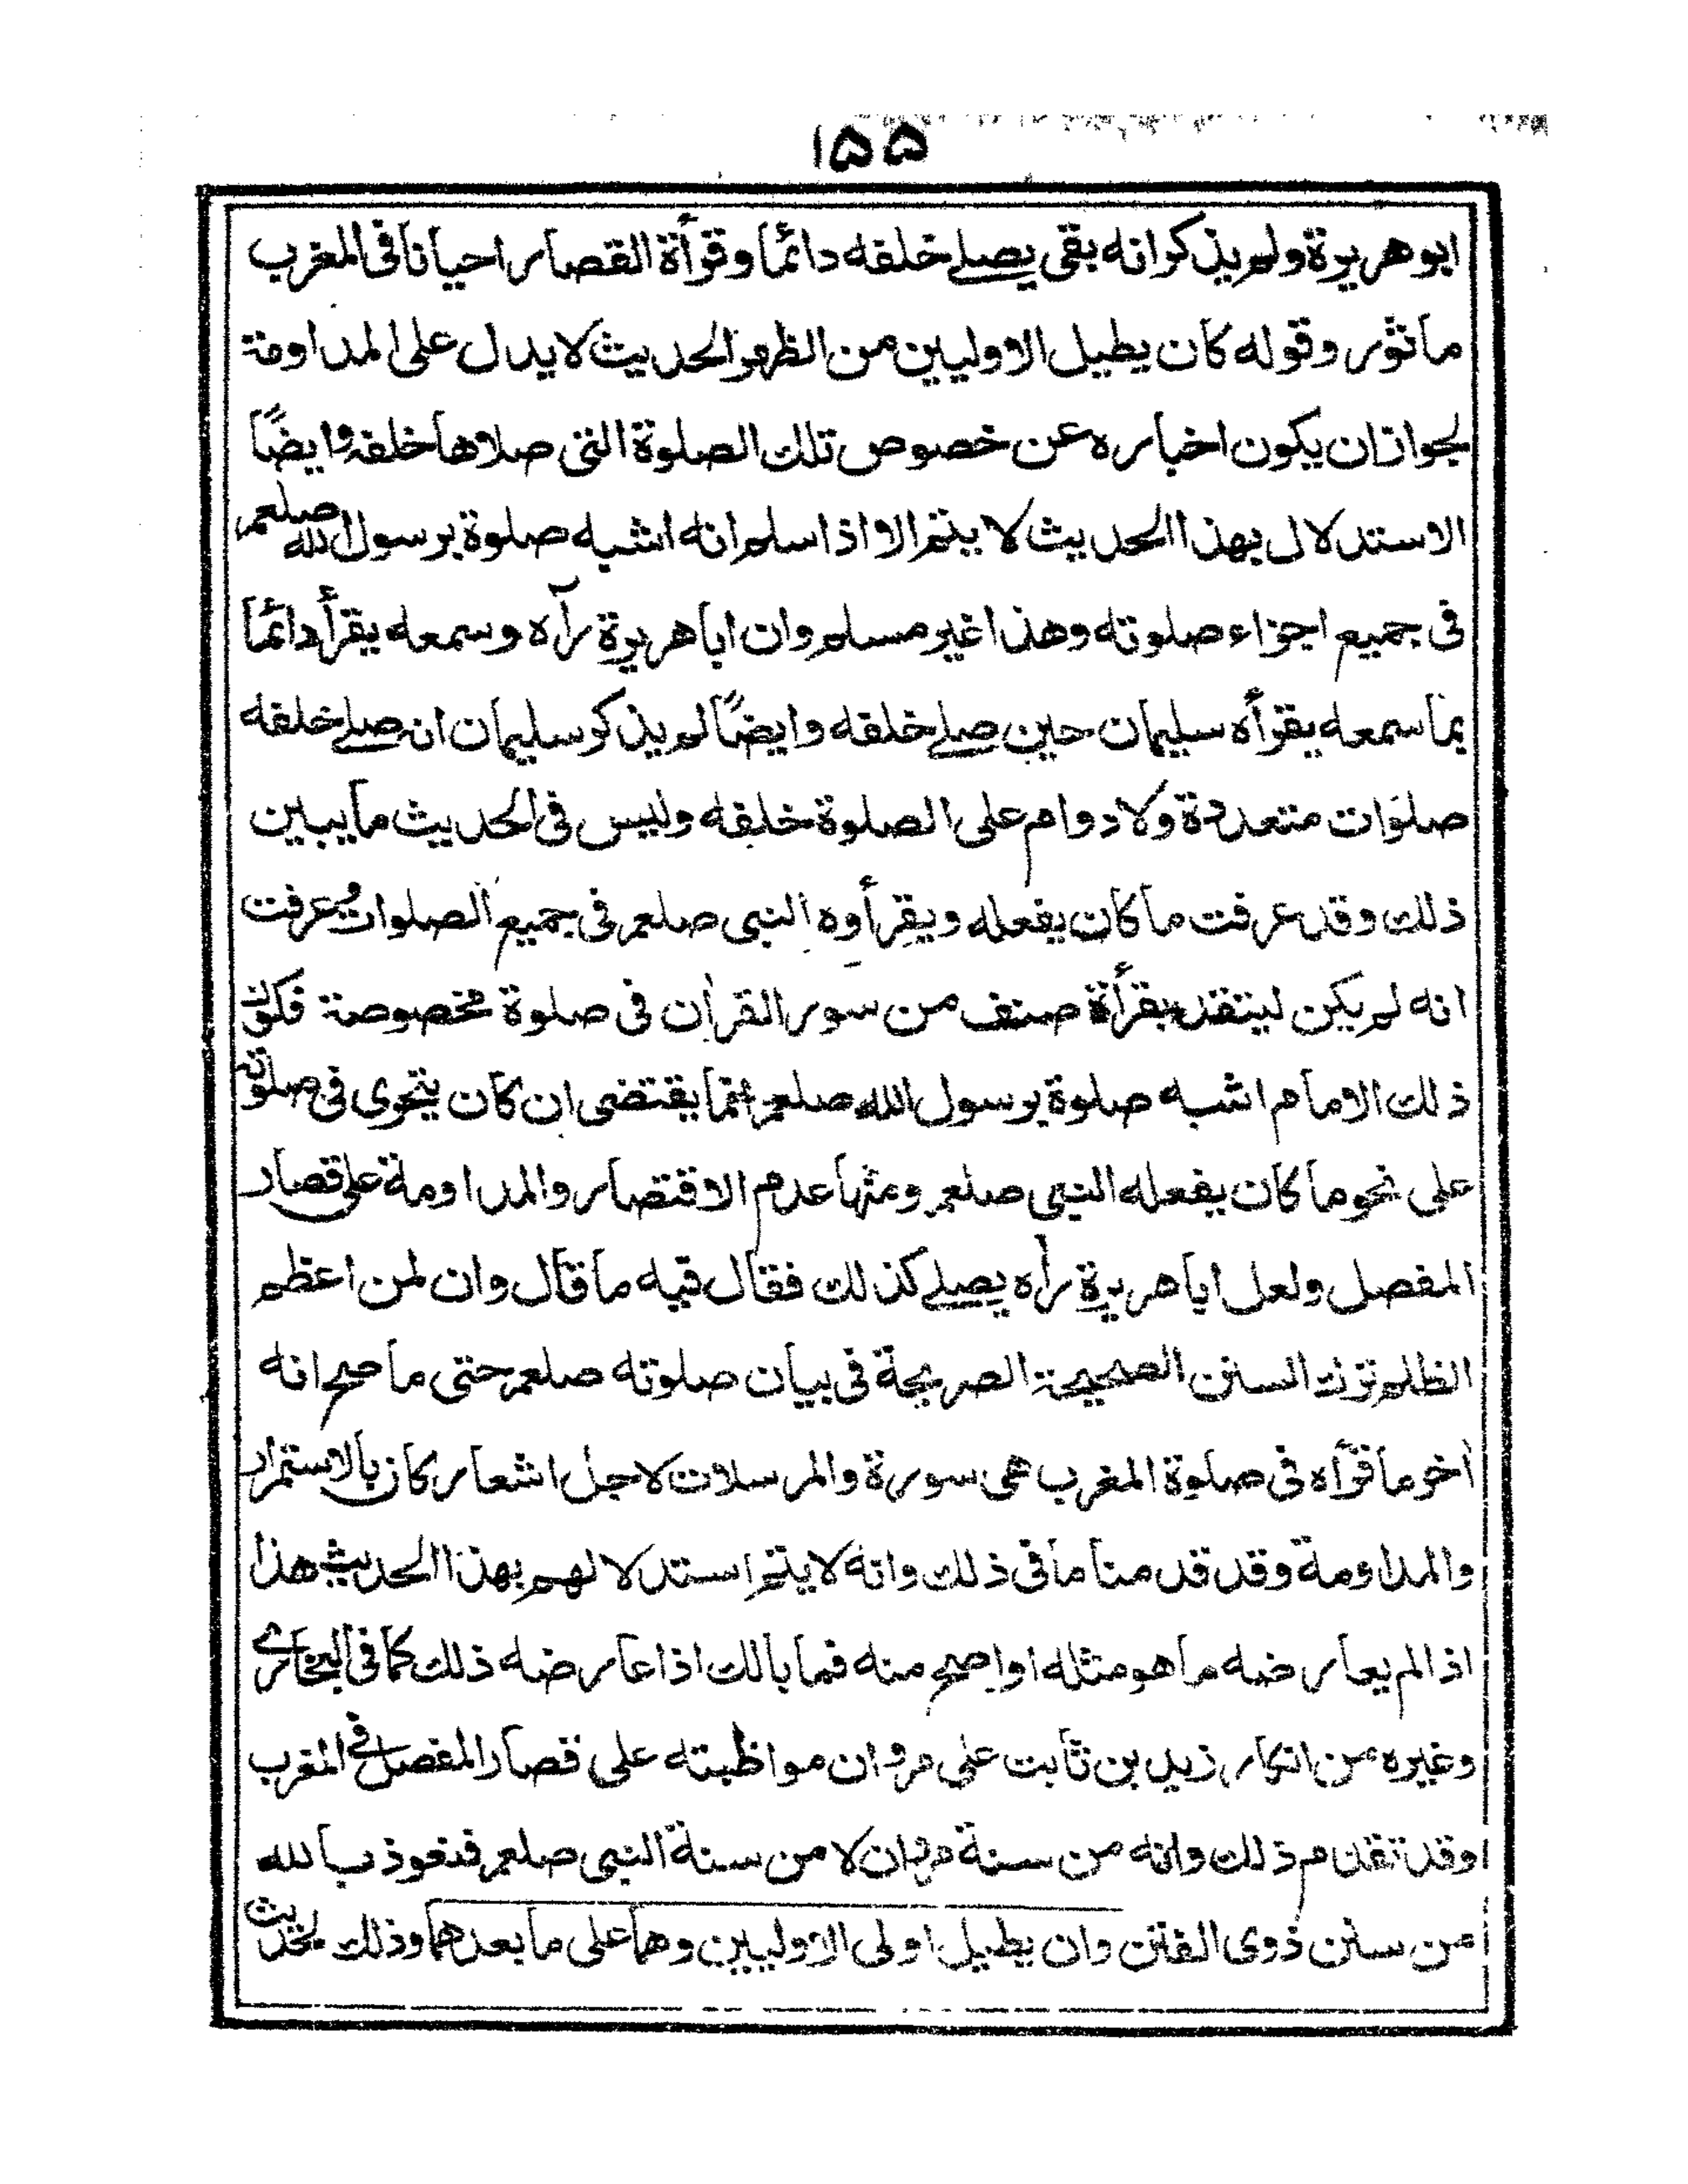 ۱۵۵
ابو هريرة ولم يذكر انه بقى يصلے خلفه دائما وقرأة القصار احيانا فى المغرب
ماثور وقوله كان يطيل الاوليين من الظهر الحديث لا يدل على المداومة
لجواز ان يكون اخباره عن خصوص تلك الصلوة التى صلاها خلفه وايضاً
الاستدلال بهذا الحديث لا يتم الا اذا سلم انه اشبه صلوة برسول الله صلعم
فى جميع اجزاء صلوته وهذا غير مسلم وان ابا هريرة رآه وسمعه يقرأ دائما
بما سمعه يقرأه سليمان حين صلے خلفه وايضاً لم يذكر سليمان انه صلے خلفه
صلوات متعددة ولا دوام على الصلوة خلفه وليس فى الحديث ما يبين
ذلك وقد عرفت ما كان يفعله ويقرأوه النبى صلعم فى جميع الصلوات وعرفت
انه لم يكن ليتقد بقرأة صنف من سور القرأن فى صلوة مخصوصة فكون
ذلك الامام اشبه صلوة برسول الله صلعم انما يقتضى ان كان يتحرى فى صلوته
على نحو ما كان يفعله النبى صلعم ومنها عدم الاقتصار والمداومة على قصار
المفصل ولعل ابا هريرة رأه يصلے كذلك فقال فيه ما قال وان لمن اعظم
الظلم ترك السنن الصحيحة الصريحة فى بيان صلوته صلعم حتى ما صح انه
أخر ما قرأه فى صلوة المغرب هى سورة والمرسلات لاجل اشعار كان بالاستمرار
والمداومة وقد قدمنا ما فى ذلك وانه لا يتم استدلالهم بهذا الحديث هذا
اذا لم يعارضه ما هو مثله او اصح منه فما بالك اذا عارضه ذلك كما فى البخارے
وغيره من انكار زيد بن ثابت على مروان مواظبته على قصار المفصل فى المغرب
وقد تقدم ذلك وانه من سنة مروان لا من سنة النبى صلعم فنعوذ بالله
من سنن ذوى الفتن وان يطيل اولى الاوليين وهما على ما بعدهما وذلك لحديث